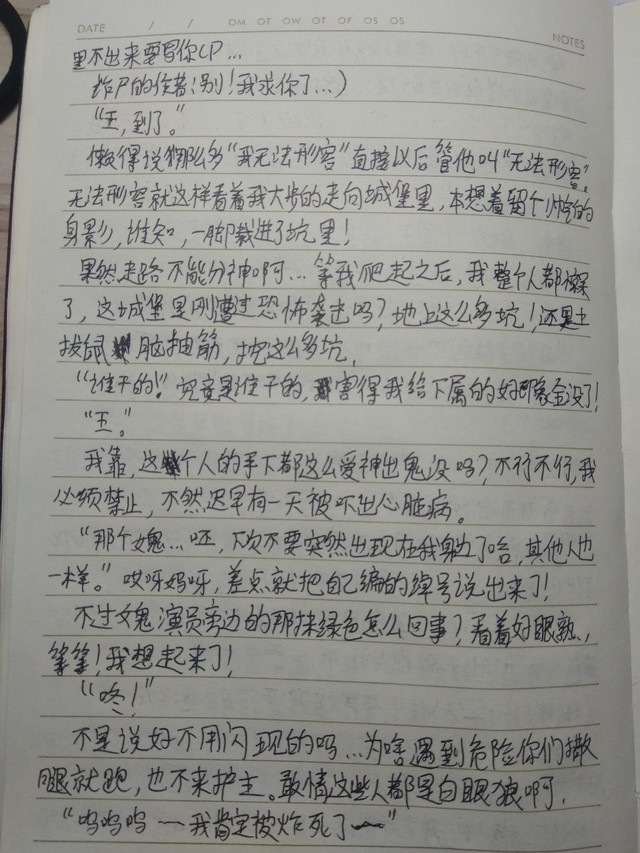 DATE / / OM OT OW OT OF OS OS NOTES
里不出来要写你CP…
诈尸的作者：别！我求你了…）
“王，到了。”
懒得说那么多“我无法形容”直接以后管他叫“无法形容”，
无法形容就这样看着我大步的走向城堡里，本想着留个帅气的
身影，谁知，一脚栽进了坑里！
果然走路不能分神啊…等我爬起之后，我整个人都懵
了，这城堡里刚遭过恐怖袭击吗？地上这么多坑！还是土
拨鼠脑抽筋，挖这么多坑，
“谁干的！”究竟是谁干的，害得我给下属的好印象全没了！
“王。”
我靠，这个人的手下都这么爱神出鬼没吗？不行不行，我
必须禁止，不然迟早有一天被吓出心脏病。
“那个媿…呸，下次不要突然出现在我身边了哈，其他人也
一样。”哎呀妈呀，差点就把自己编的绰号说出来了！
不过媿演员旁边的那抹绿色怎么回事？看着好眼熟，
等等！我想起来了！
“咚！”
不是说好不用闪现的吗…为啥遇到危险你们撒
腿就跑，也不来护主。敢情这些人都是白眼狼啊，
“呜呜呜～我肯定被炸死了～”